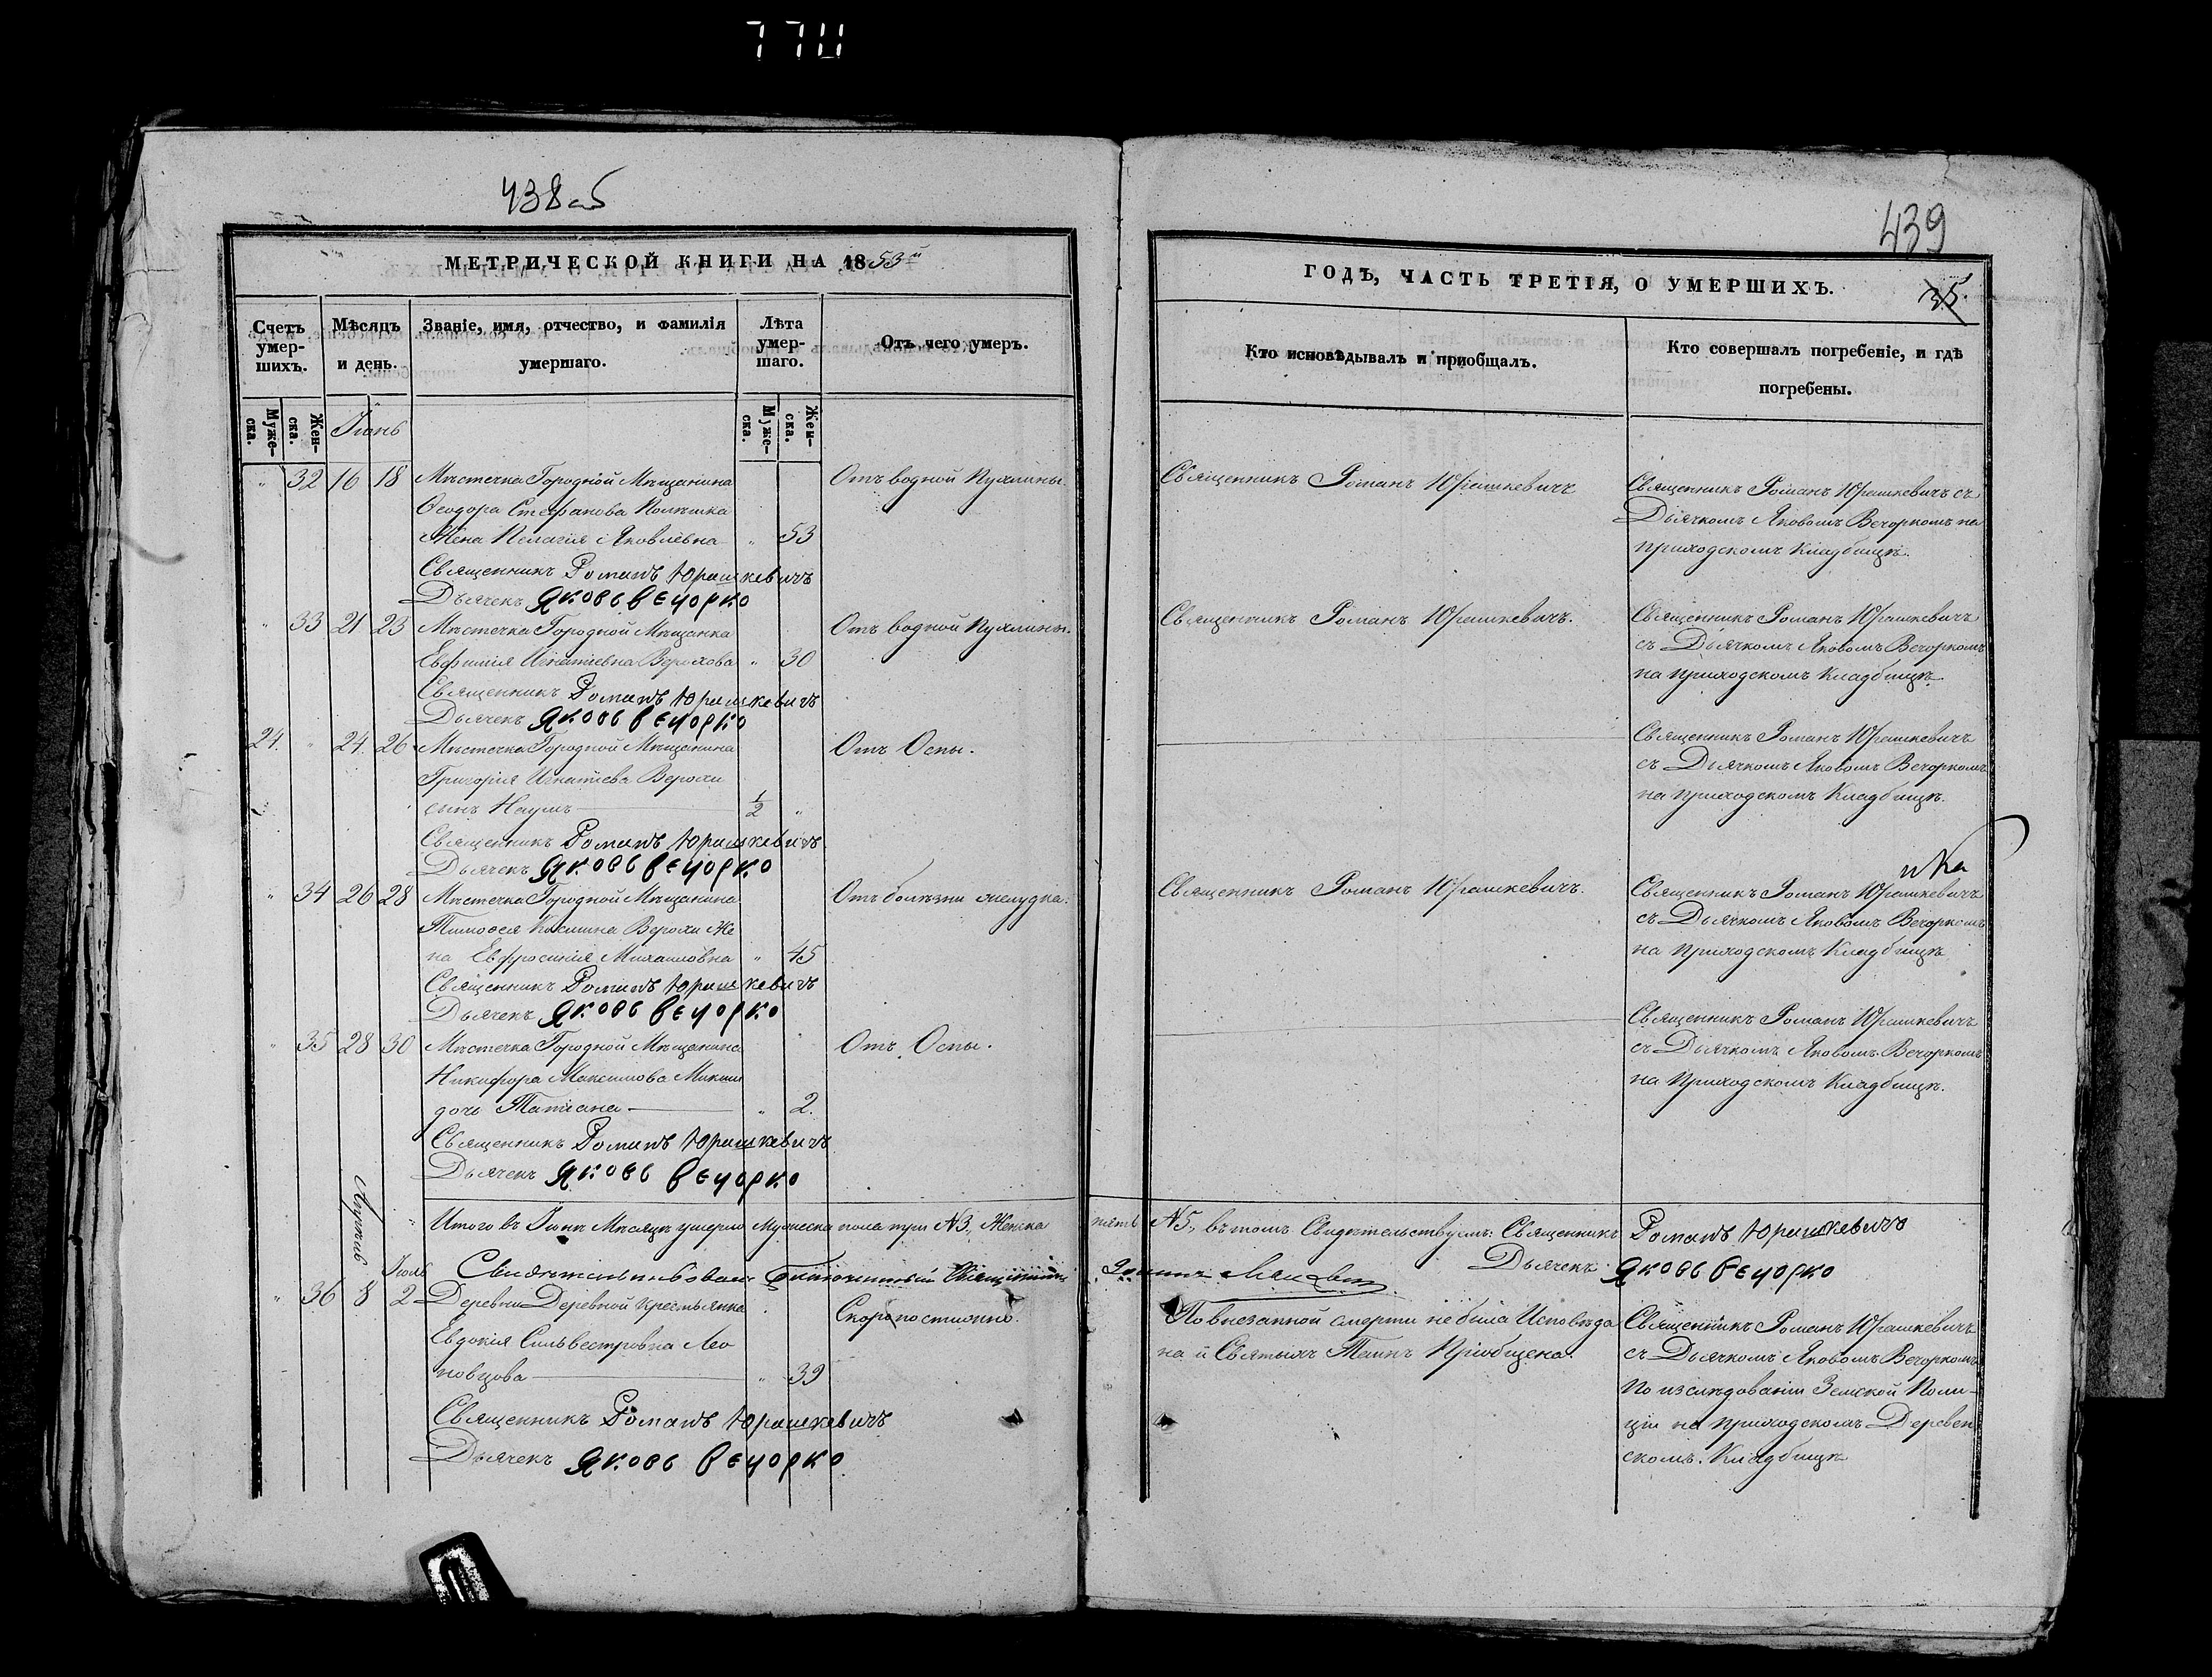 770
438 об
439
МЕТРИЧЕСКОЙ КНИГИ НА 1853й
ГОДЪ, ЧАСТЬ ТРЕТІЯ, О УМЕРШИХЪ.
35.
Счетъ умер-шихъ.
Мѣсяцъ и день.
Званіе, имя, отчество, и фамилія умершаго.
Лѣта умер-шаго.
Отъ чего умеръ.
Кто исповѣдывалъ и пріобщалъ.
Кто совершалъ погребеніе, и гдѣ погребены.
Муже-ска.
Жен-ска.
Іюнь
Муже-ска.
Жен-ска.
" 32 16 18 Мѣстечка Городной Мѣщанина
Ѳеодора Стефанова Полѣшка
Жена Пелагія Яковлевна " 53
Отъ водной Пухлины.
Священникъ Романъ Юрашкевичъ
Священникъ Романъ Юрашкевичъ съ
Дьячкомъ Яковомъ Вечоркомъ на
приходскомъ Кладбищѣ.
Священникъ Романъ Юрашкевичъ
Дьячекъ Яковъ Вечорко
" 33 21 23 Мѣстечка Городной Мѣщанка
Евфимія Игнатіевна Верохова " 30
Отъ водной Пухлины.
Священникъ Романъ Юрашкевичъ.
Священникъ Романъ Юрашкевичъ
съ Дьячкомъ Яковомъ Вечоркомъ
на приходскомъ Кладбищѣ.
Священникъ Романъ Юрашкевичъ
Дьячекъ Яковъ Вечорко
24. " 24. 26 Мѣстечка Городной Мѣщанина
Григорія Игнатіева Верохи
сынъ Наумъ 1/2 "
Отъ Оспы.
Священникъ Романъ Юрашкевичъ
съ Дьячкомъ Яковомъ Вечоркомъ
на приходскомъ Кладбищѣ.
Священникъ Романъ Юрашкевичъ
Дьячекъ Яковъ Вечорко
" 34 26 28 Мѣстечка Городной Мѣщанина
Тимоѳея Космина Верохи Же
на Евфросинія Михаиловна " 45
Отъ болѣзни желудка.
Священникъ Романъ Юрашкевичъ.
Священникъ Романъ Юрашкевичъ
съ Дьячкомъ Яковомъ Вечоркомъ
на приходскомъ Кладбищѣ
Священникъ Романъ Юрашкевичъ
Дьячекъ Яковъ Вечорко
" 35 28 30 Мѣстечка Городной Мѣщанина
Никифора Максимова
дочь Татіана " 2.
Отъ Оспы.
Священникъ Романъ Юрашкевичъ
съ Дьячкомъ Яковомъ Вечоркомъ
на приходскомъ Кладбищѣ.
Священникъ Романъ Юрашкевичъ
Дьячекъ Яковъ Вечорко
Итого въ Іюнѣ Мѣсяцѣ умерло Мужеска пола три №3., Женска пять №5., въ томъ Свидѣтельствуемъ: Священникъ Романъ Юрашкевичъ
Дьячекъ Яковъ Вечорко
Свидѣтельствовалъ Благочинный Священникъ
Іюль
" 36 8 2 Деревни Деревной Крестьянка
Евдокія Сильвестровна Лео
новцова " 39
Скоропостижно.
По внезапной смерти не была Исповѣда
на и Святыхъ Таинъ Пріобщена.
Священникъ Романъ Юрашкевичъ
съ Дьячкомъ Яковомъ Вечоркомъ
по изслѣдованіи Земской Поли-
ціи на приходскомъ Деревен
скомъ Кладбищѣ
Священникъ Романъ Юрашкевичъ
Дьячекъ Яковъ Вечорко